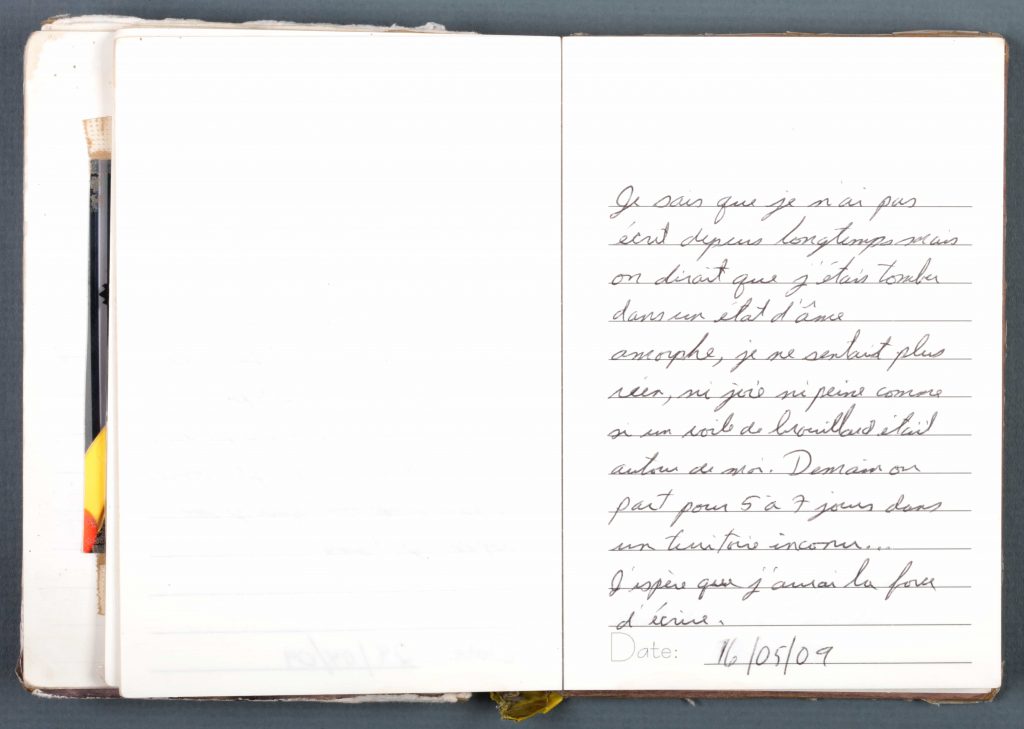 Je sais que je n'ai pas
écrit depuis longtemps mais
on dirait que j'étais tomber
dans un état d'âme
amorphe, je ne sentait plus
rien, ni joie ni peine comme
si un voile de brouillard était
autour de moi. Demain on
part pour 5 à 7 jours dans
un territoire inconnu...
J'espère que j'aurai la force
d'écrire.
Date: 16/05/09